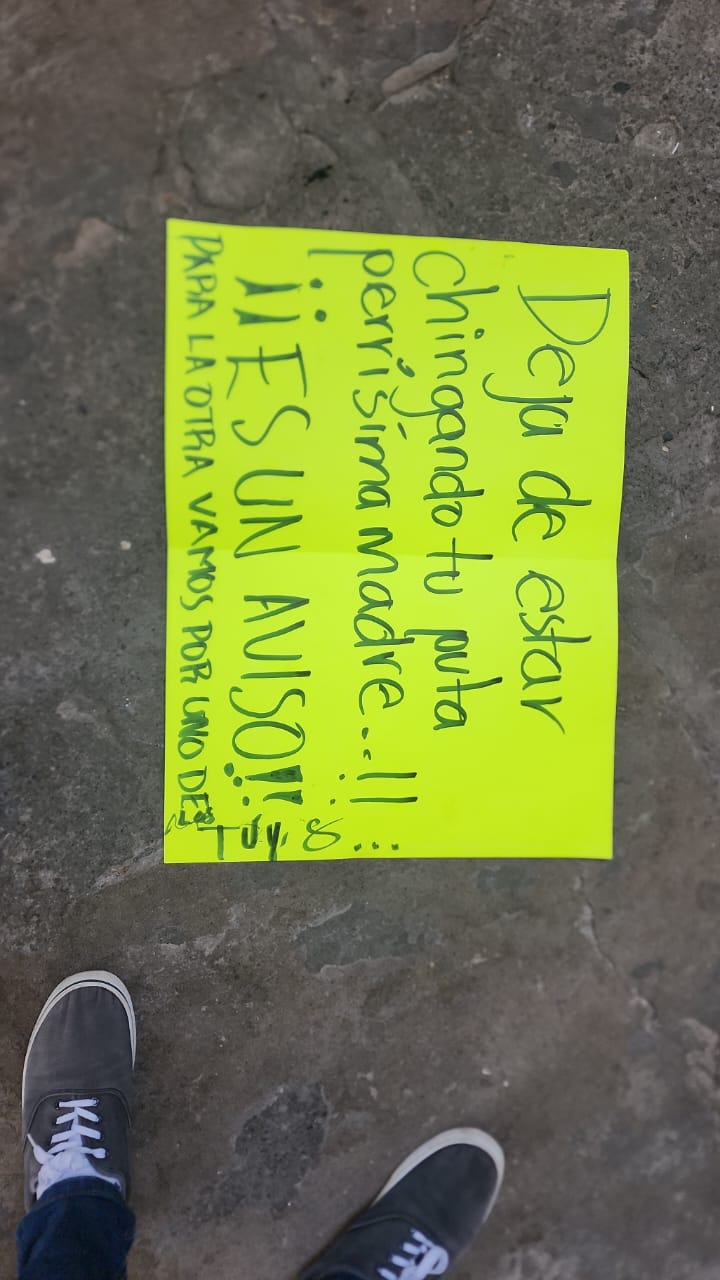 Deja de estar
chingando tu puta
perrísima madre...!!
¡¡ES UN AVISO!!
PARA LA OTRA VAMOS POR UNO DE
TUYS...